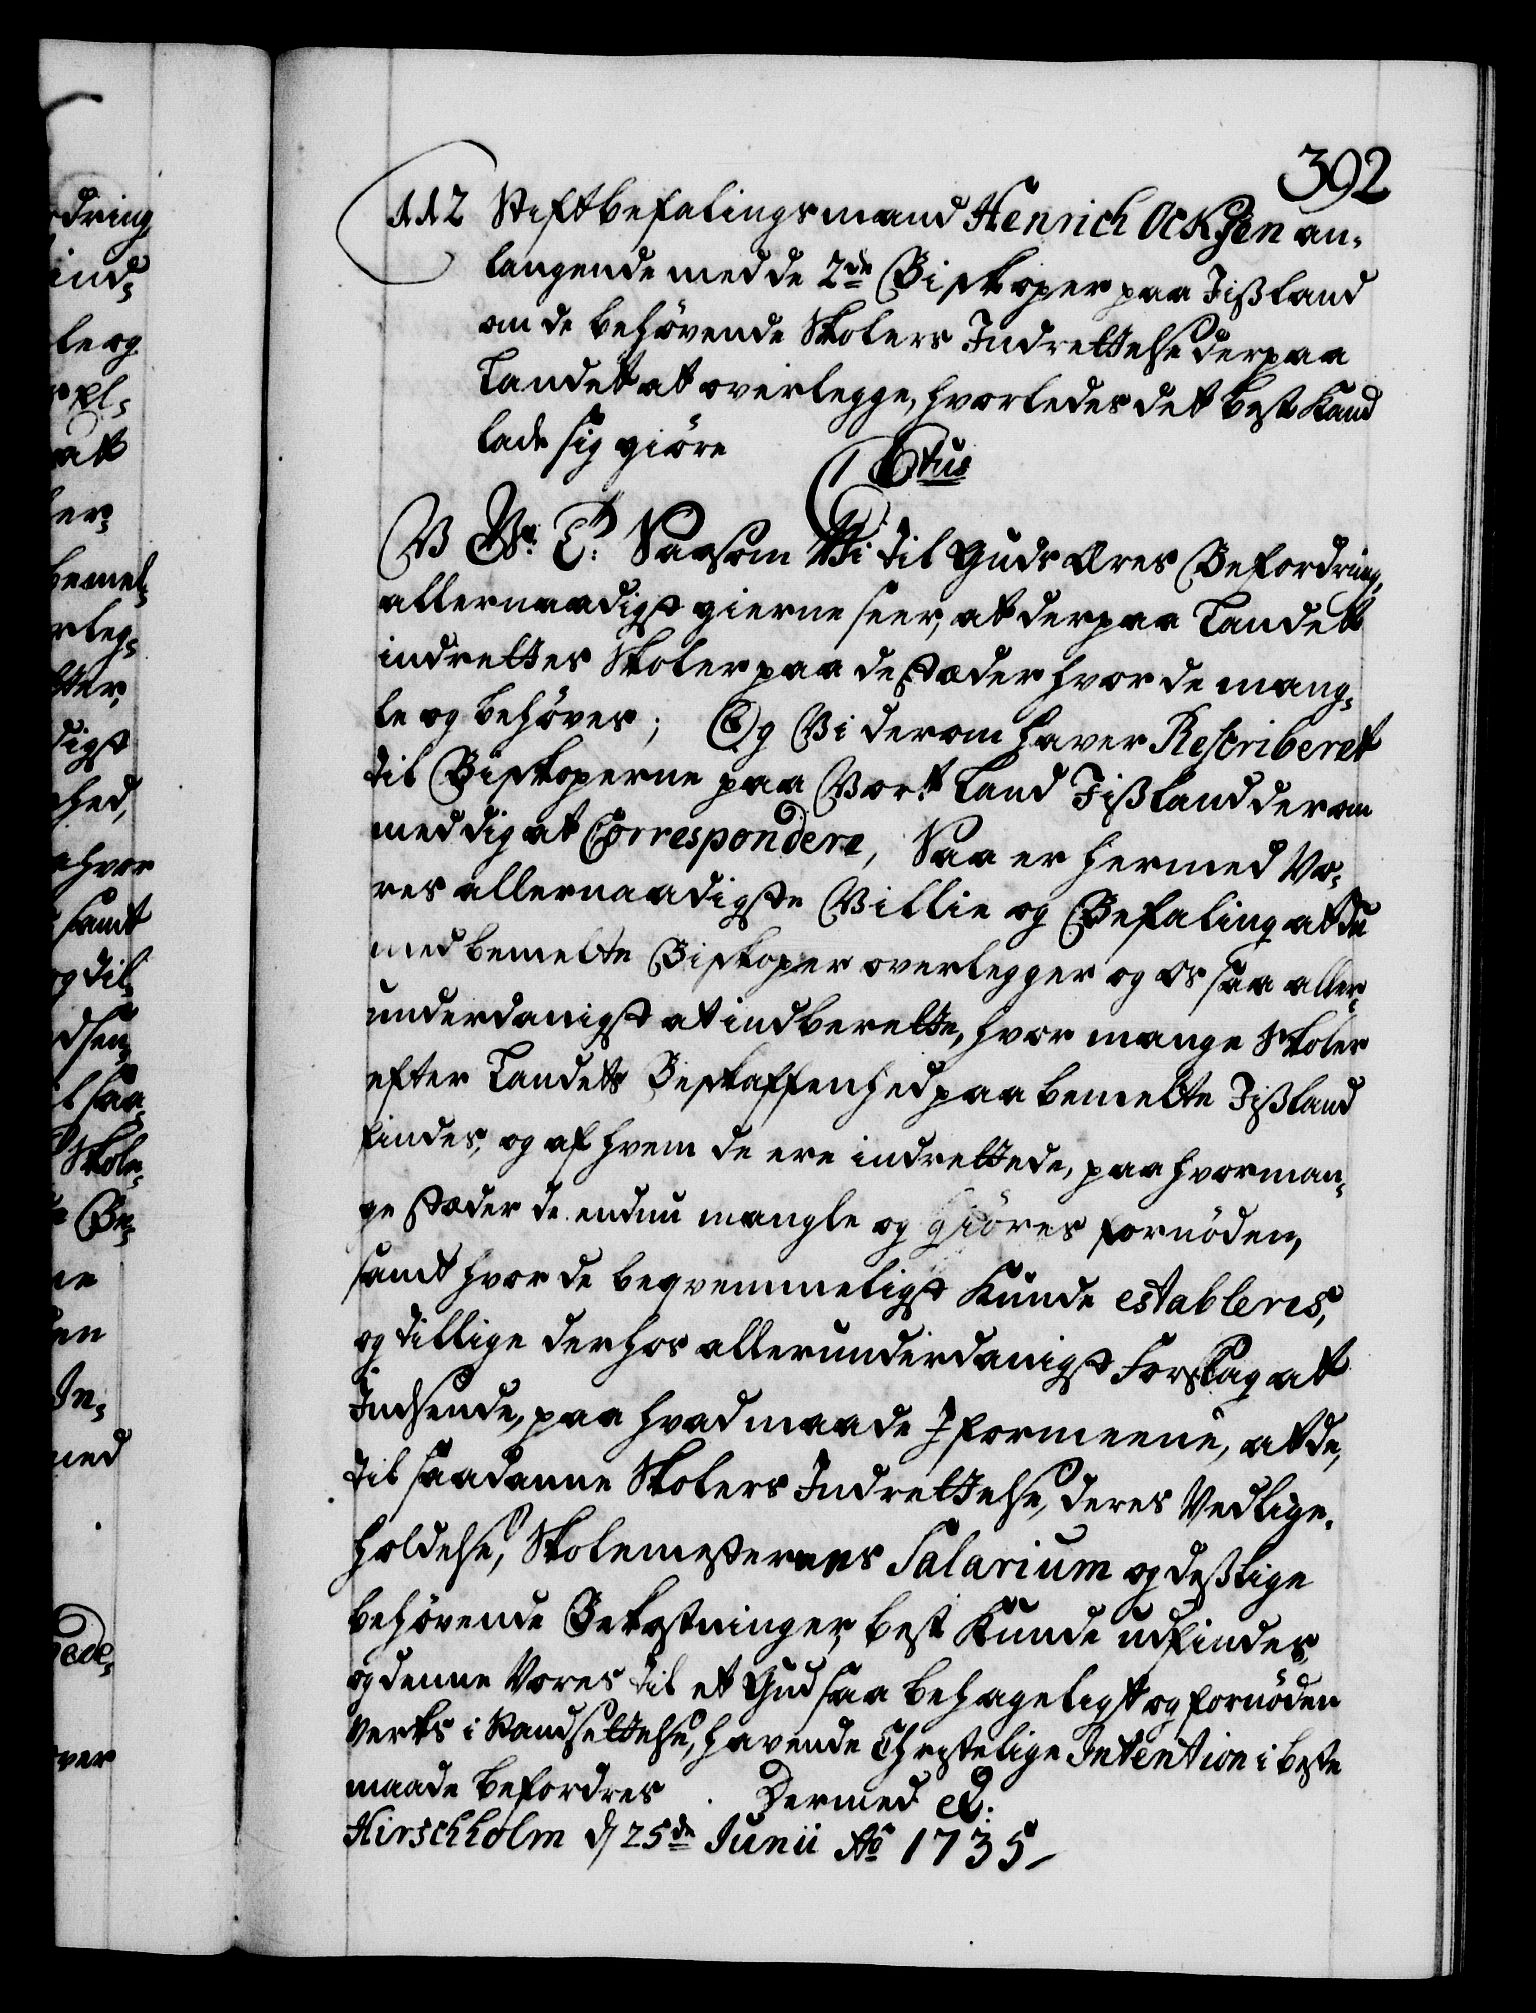 392
112 Stiftbefalingsmand Henrich Ocksen an-
langende med de 2de Biskoper paa Jißland
om de behøvende Skolers Indrettelse derpaa
Landet at overlegge, hvorledes det best Kand
lade sig giøre
C 6tus
V W: T: Saasom Vi til Guds Æres Befordring,
allernaadigst gierne seer, at derpaa Landet
indrettes Skoler paa de Stæder hvor de mang-
le og behøves; Og Vi derom haver Rescriberet
til Biskoperne paa Vort Land Jißland derom
med dig at Correspondere, Saa er hermed Vo-
res allernaadigste Villie og Befaling at du
med bemelte Biskoper overlegger og os saa aller-
underdanigst at indberette, hvor mange Skoler
efter Landets Beskaffenhed paa bemelte Jißland
findes, og af hvem de ere indrettede, paa hvor man-
ge Stæder de endnu mangle og giøres fornøden,
samt hvor de beqvemmeligst Kunde estableres,
og tillige derhos allerunderdanigst Forslag at
Indsende, paa hvad maade I formeene, at de,
til saadanne Skolers Indrettelse, deres Vedlige-
holdelse, Skolemesternes Salarium og deßlige
behøvende Bekostninger, best Kunde udfindes,
og denne Vores til et Gud saa behageligt og fornøden
Verks i Standsettelse, havende Christelige Intention i beste
maade befordres . Dermed et:
Hirschholm d 25de Junii Ao 1735
dring
ind-
le og
at
ler-
bemel-
rleg-
tter,
digst
hed,
hvor
samt
og til-
dsen-
saa-
Skole-
Be-
ne
en
In-
med
ver